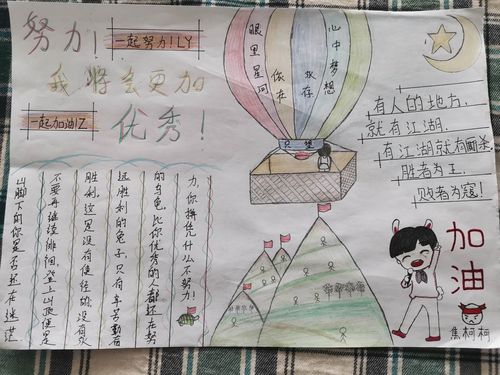 努力!
一起努力!LY
我将会更加
一起加油!Z
优秀!
眼里星河
依在
放在
心中梦想
有人的地方,
就有江湖.
有江湖就有厮杀.
胜者为王.
败者为寇!
力,你拼凭什么不努力!
的乌龟,比你优秀的人都还在努
远胜利的兔子,只有辛苦勤奋
胜利,这里没有侥幸的,没有永
不要再继续徘徊,登上山顶便是
山脚下的你是否还在迷茫
加油
焦柯柯